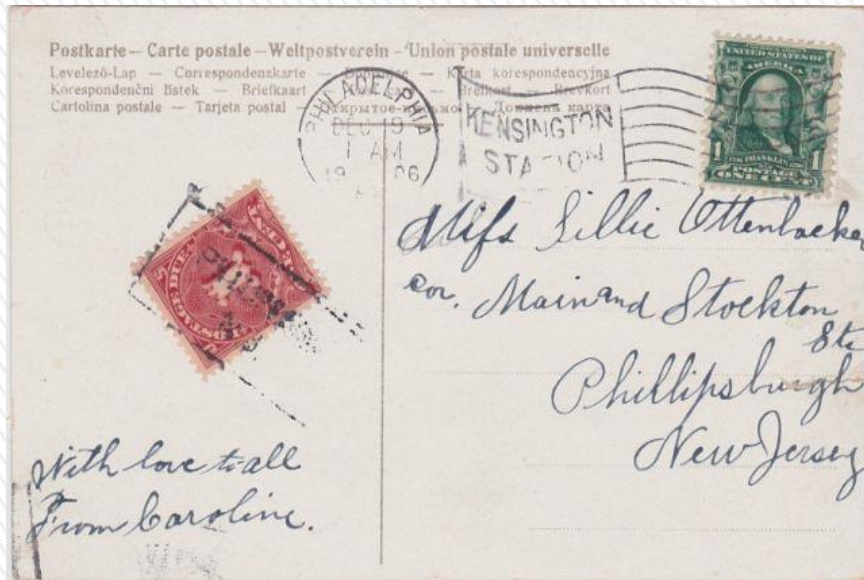 Postkarte — Carte postale — Weltpostverein — Union postale universelle
Levelező-Lap — Correspondenzkarte — Karta korespondencyjna
Korespondenční lístek — Briefkaart — Brefkort — Brevkort
Cartolina postale — Tarjeta postal — Открытое письмо — Дописна карта
PHILADELPHIA
DEC 19
1 AM
1906
KENSINGTON
STATION
UNITED STATES OF
AMERICA
1 FRANKLIN 1
POSTAGE
ONE CENT
POSTAGE DUE
Miss Lillie Ottenbacker
cor. Main and Stockton
Sts
Phillipsburgh
New Jersey
With love to all
From Caroline.